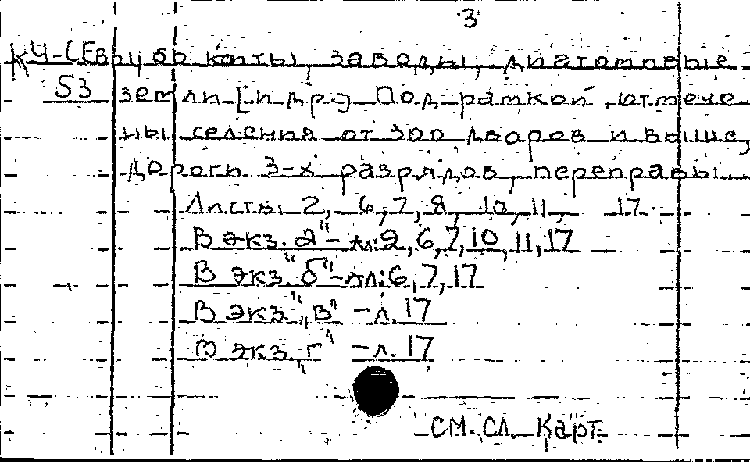 3
КЧ-(Евр
вырубки, каиты, заводы, диатомовые
53 земли [и др.] Под рамкой отмече-
ны селения от 300 дворов и выше,
дороги 3-х разрядов, переправы
Листы 2, 6, 7, 8, 10, 11, 17.
В экз. "а" - лл: 2, 6, 7, 10, 11, 17
В экз. "б" - лл: 6, 7, 17
В экз. "в" - л. 17
В экз. "г" - л. 17
см. сл. карт.